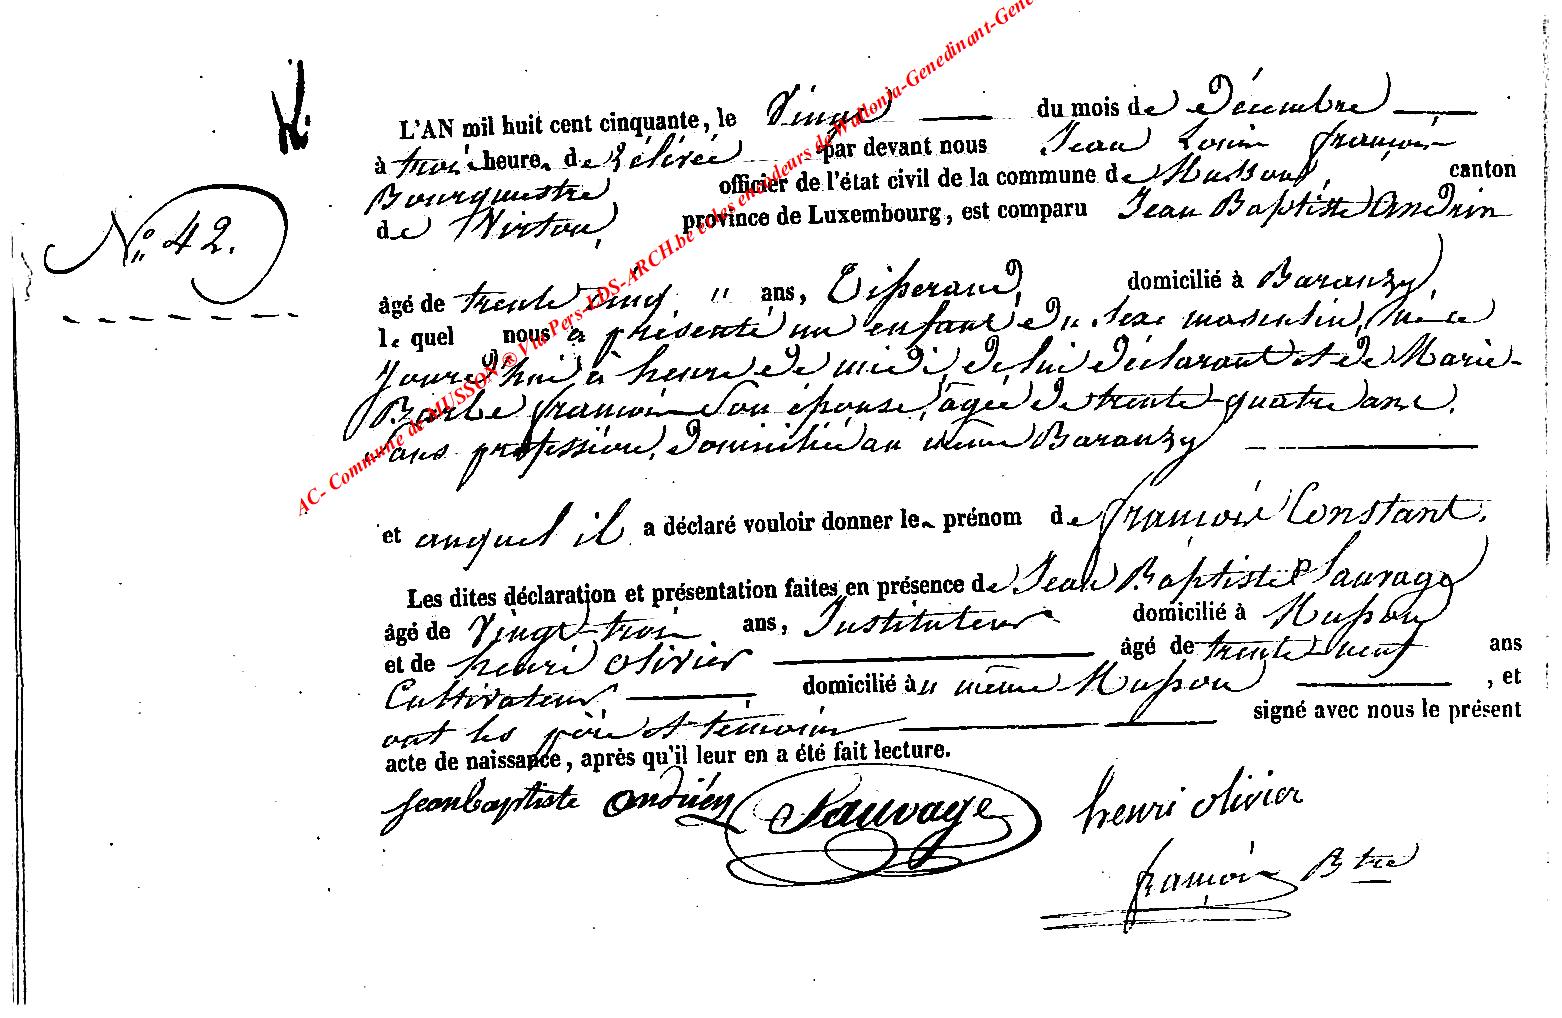 L'AN mil huit cent cinquante, le Vingt du mois de Décembre
à trois heures de Rélévée par devant nous Jean Louis françois
Bourgmestre officier de l'état civil de la commune de Musson, canton
de Virton, province de Luxembourg, est comparu Jean Baptiste Andrin
N° 42.
âgé de trente cinq " ans, Tisserand, domicilié à Baranzy,
le quel nous a présenté un enfant du sexe masculin, né ce
Jourd'hui à heure de midi, de lui déclarant et de Marie-
Barbe françois son épouse, âgée de trente-quatre ans.
sans profession, domiciliée au même Baranzy
et auquel il a déclaré vouloir donner les prénom de françois Constant.
Les dites déclaration et présentation faites en présence de Jean Baptiste Sauvage
âgé de Vingt-trois ans, Instituteur domicilié à Musson
et de henri Olivier âgé de trente neuf ans
Cultivateur, domicilié àu même Musson , et
ont les père et témoins signé avec nous le présent
acte de naissance, après qu'il leur en a été fait lecture.
jeanbaptiste andrien Sauvage henri olivier
françois Btre
AC- Commune de MUSSON ® Via Pers-LDS-ARCH.be et les encodeurs de Wallonia-Genedinant-Gene